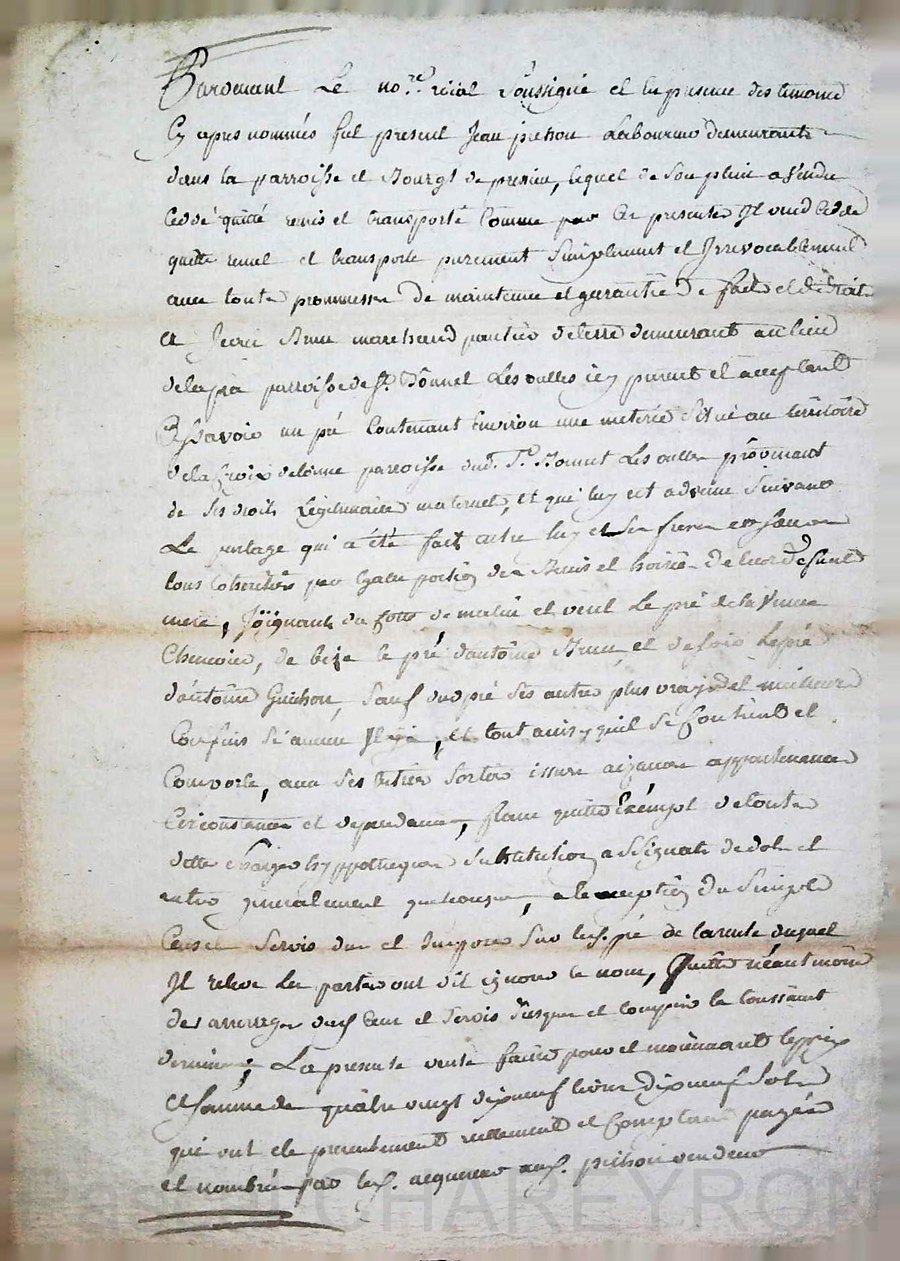 Pardevant Le no.re roial soussigné et en presence des temoins
Cy apres nommés fut present Jean pichon Laboureur demeurant
dans la parroisse et Bourgt de lequel de son plein a vendu
ceddé quitté remis et transporté Comme par Ces presentes Il vend cedde
quitte remet et transporte purement simplement et Irrevocablement
avec toutes promesses de maintenue et garantie de fait et de droit
a Brun marchand de terre demeurant au lieu
de parroisse de St. Bonnet Les oulles icy present et acceptant
Scavoir un pré Contenant Environ une meterée situé au territoire
de la Croix parroisse dud. St. Bonnet Les oulles provenant
de ses droits Legitimaires maternels, et qui luy est advenu suivant
Le partage qui a été fait entre luy et ses freres et soeurs
tous Coheritiers par Egale portion des Biens et hoirie de leur defunte
mere, Joignant du matin et vent Le pré de la veuve
de bize le pré d'antoine Brun, et de soir le pré
d'antoine Guichon, sauf dud pré ses autres plus vrays et meilleurs
Confins si aucun Il y a, et tout ainsy qu'il se Contient et
Comporte, avec ses Entrées sorties issues aizances appartenances
Circonstances et dependances, franc quitte Exempt de toutes
dettes charges hyppotheques substitution assignats de dot et
autres generalement quelconques, a l'exception du simple
Cens et servis du et Imposé sur led. pré de la rente duquel
Il releve les parties ont dit ignorer le nom, Quitte néantmoins
des arrerages dud Cens et servis Jusques et Compris la toussaint
derniere, La presente vente faitte pour et moiennant le prix
et somme de quatre vingt dixneuf livres dixneuf sols
qui ont ete presentement reellement et Comptant payés
et nombrés par led. acquereur aud. pichon vendeur
CHAREYRON